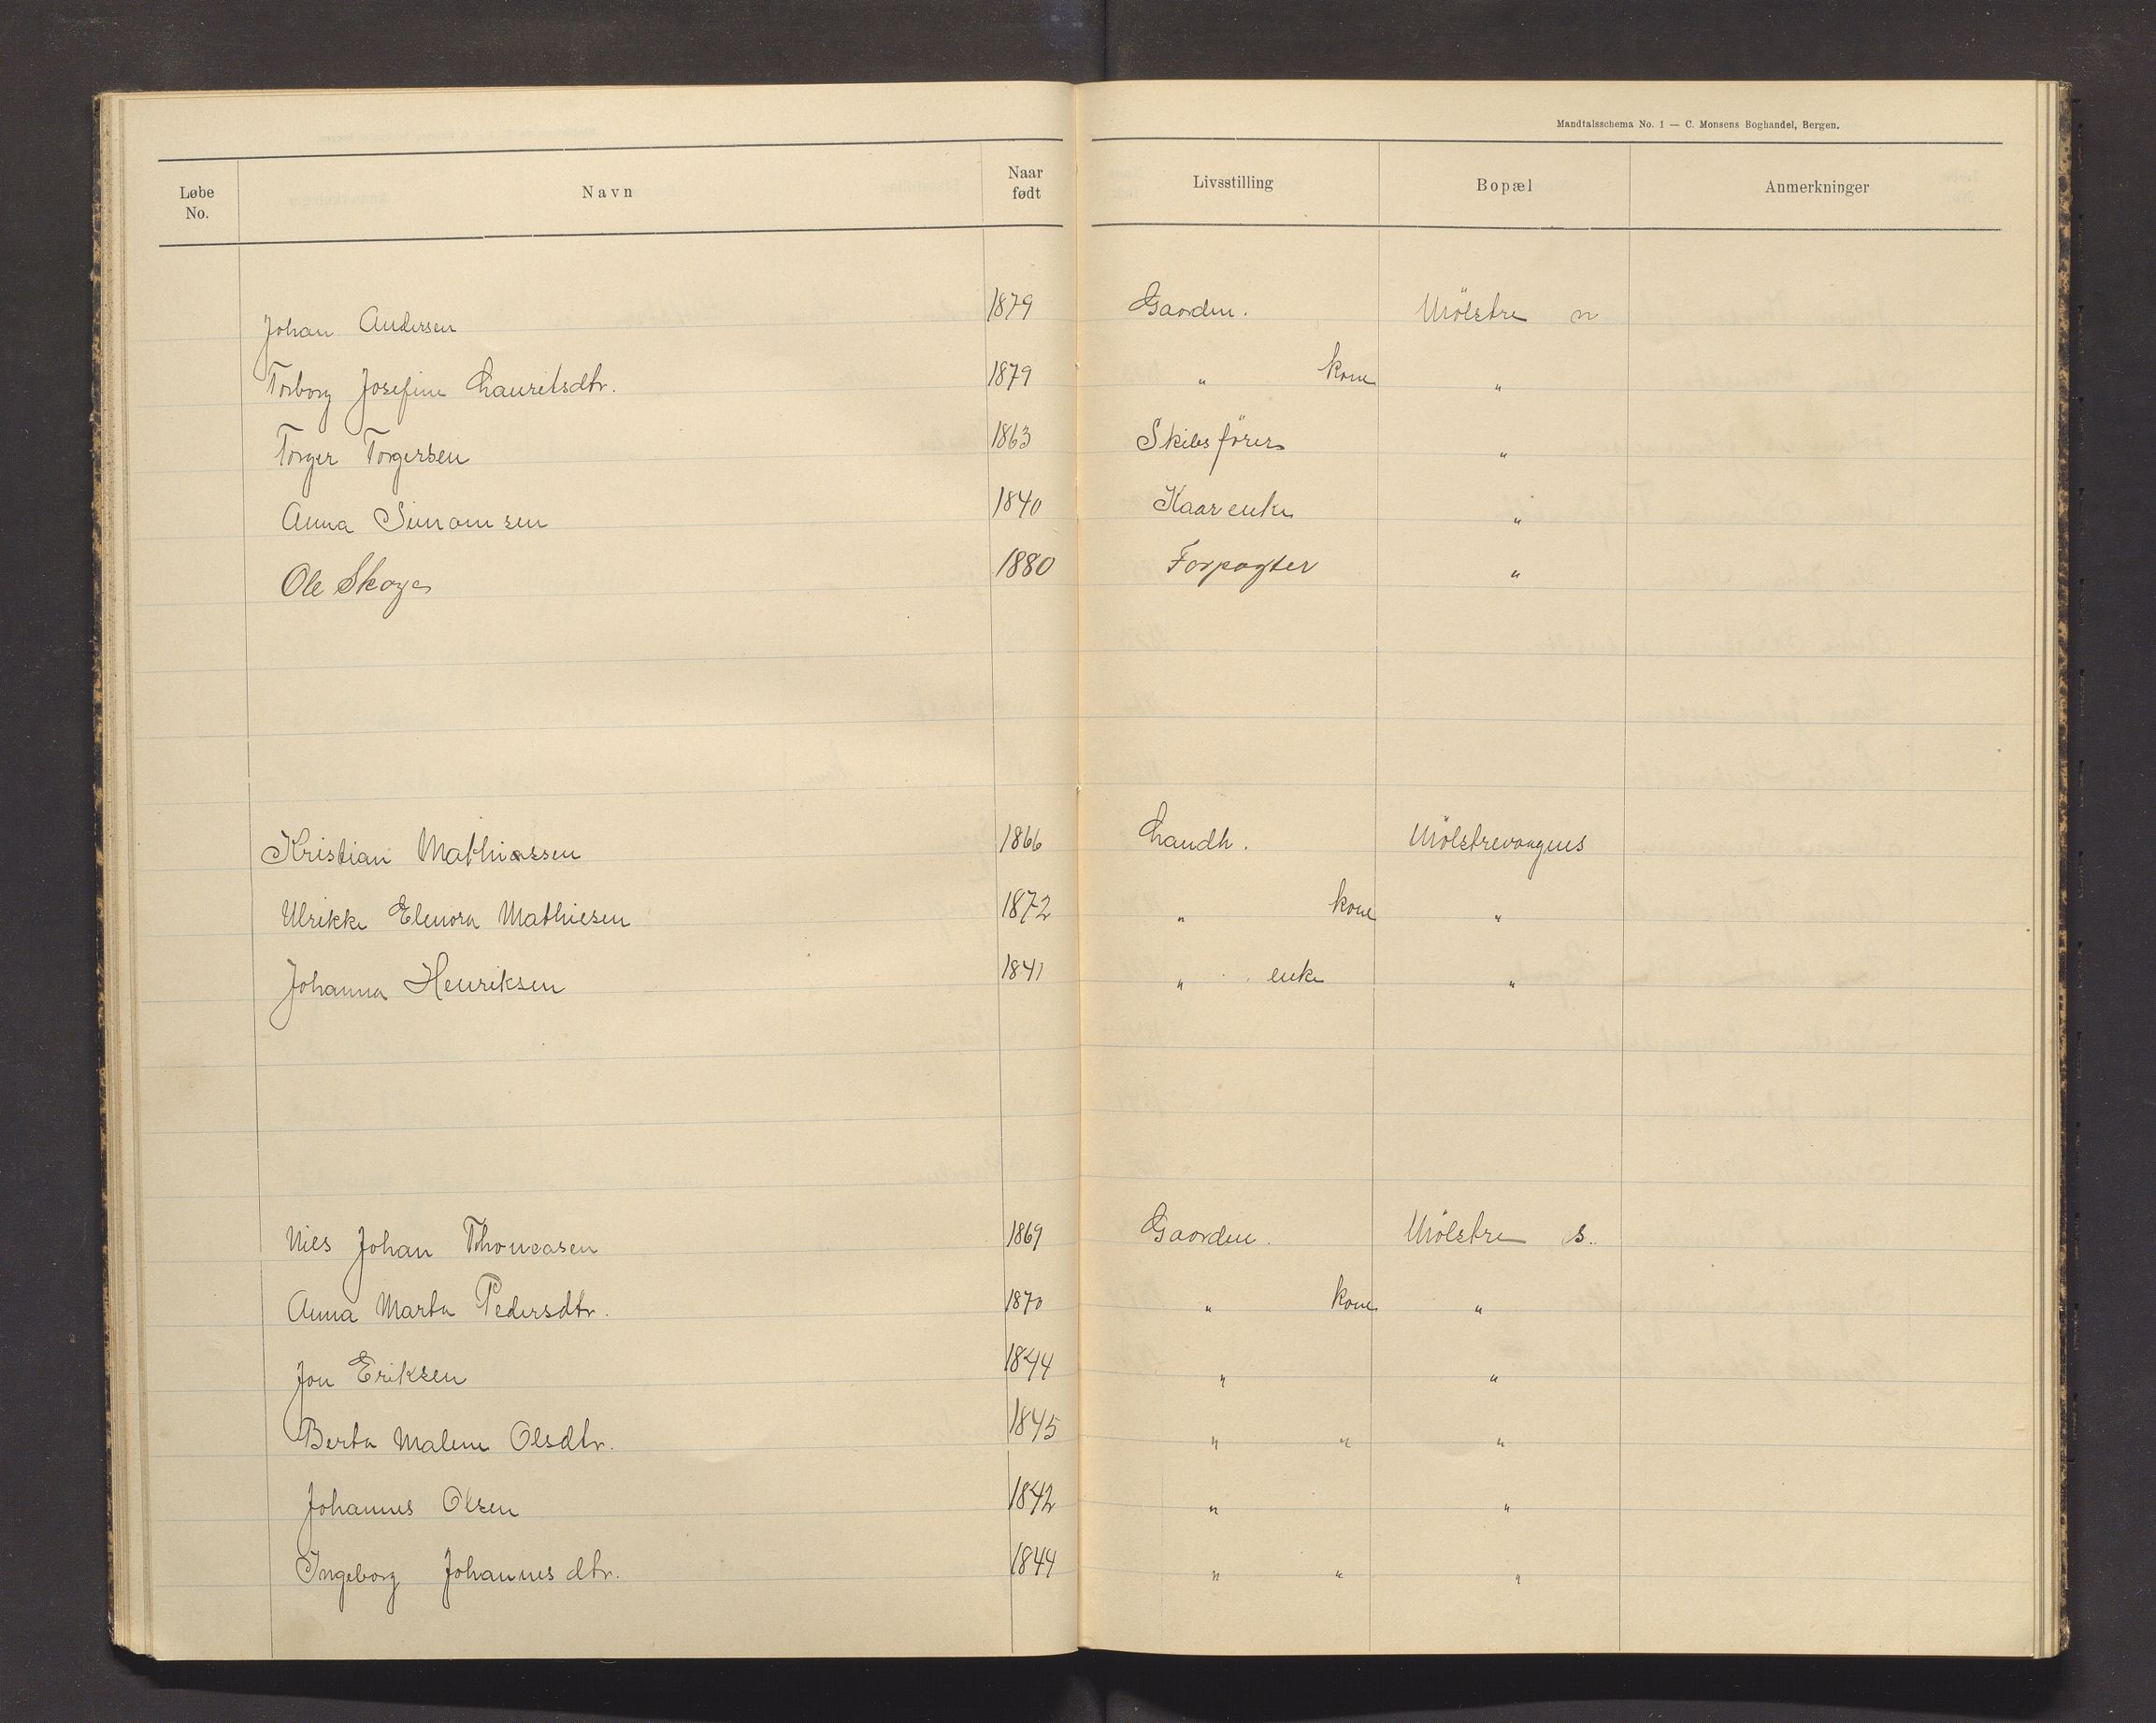 Mandtalsschema No. 1 — C. Monsens Boghandel, Bergen.
Løbe No. Navn Naar født Livsstilling Bopæl Anmerkninger
Johan Andersen 1879 Gaardm. Mölstre n
Torborg Josefine Lauritsdtr. 1879 " kone "
Torger Torgersen 1863 Skibsförer "
Anna Simonsen 1840 Kaarenke "
Ole Skoge 1880 Forpagter "
Kristian Mathiassen 1866 Landh. Mölstrevaagens
Ulrikke Elenora Mathiesen 1872 " kone "
Johanna Henriksen 1841 " enke "
Nils Johan Thomasen 1869 Gaardm. Mölstre s.
Anna Marta Pedersdtr. 1870 " kone "
Jon Eriksen 1844 " "
Berta Malene Olsdtr. 1845 " " "
Johannes Olsen 1842 " "
Ingeborg Johannesdtr. 1844 " " "